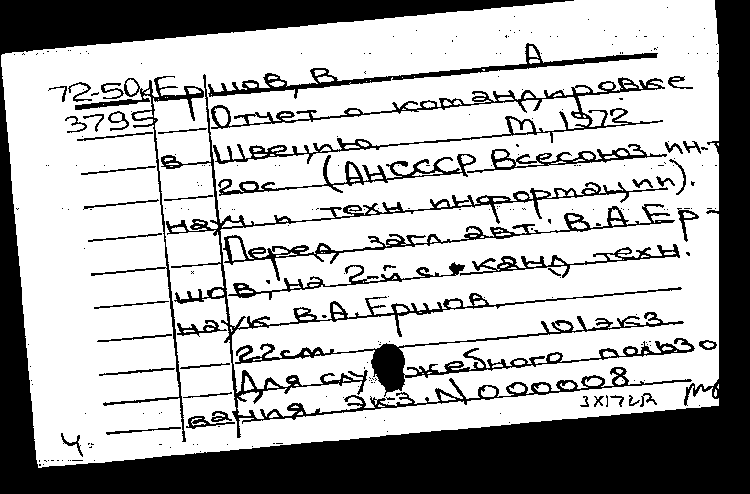 72-50к Ершов, В А
3795 Отчет о командировке
в Швецию. М., 1972.
20с (АНСССР Всесоюз ин-т
науч. и техн. информации).
Перед загл. авт.: В.А.Ер-
шов; на 2-й с. канд. техн.
наук В.А.Ершов.
22см. 101экз
Для служебного пользо
вания. экз. N 000008.
4.